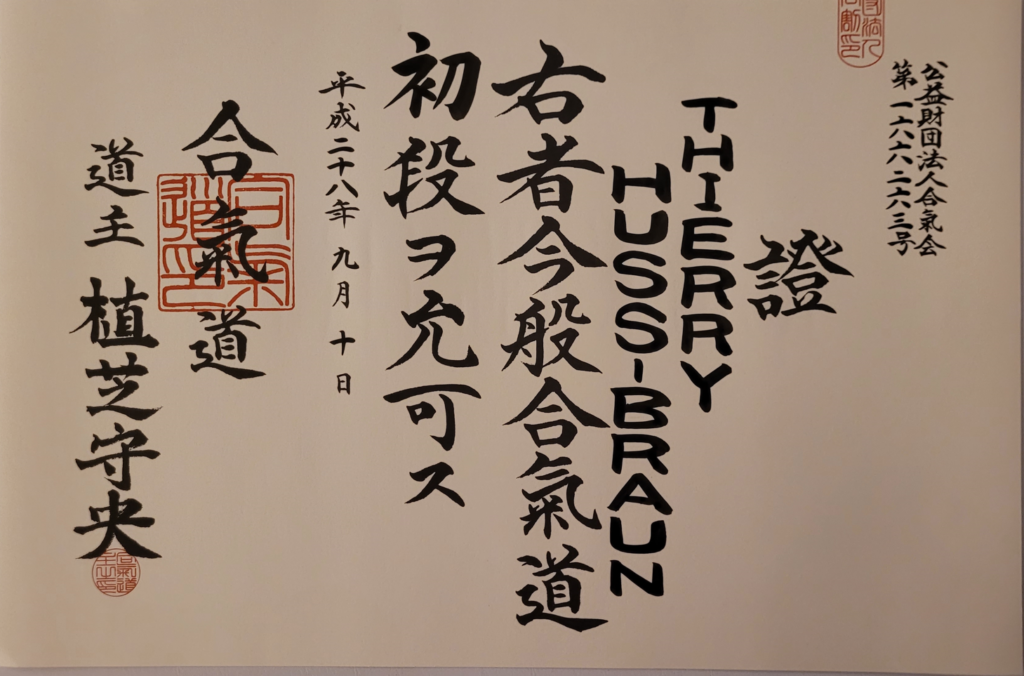 公益財団法人合氣会
第一六六二六三号
證
THIERRY
HUSS-BRAUN
右者今般合氣道
初段ヲ允可ス
平成二十八年九月十日
合氣道
道主 植芝守央